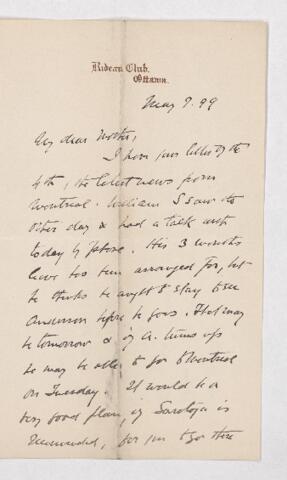 Rideau Club,
Ottawa.
May 7. 99
My dear Mother,
I have your letter of the
4th, the latest news from
Montreal. William S I saw the
other day & had a talk with
today by phone. His 3 months
leave has been arranged for, but
he thinks he ought to stay to see
Anderson before he goes. That may
be tomorrow & if A. turns up
he may be able to go to Montreal
on Tuesday. It would be a
very good plan, if Saratoga is
recommended, for you to go there